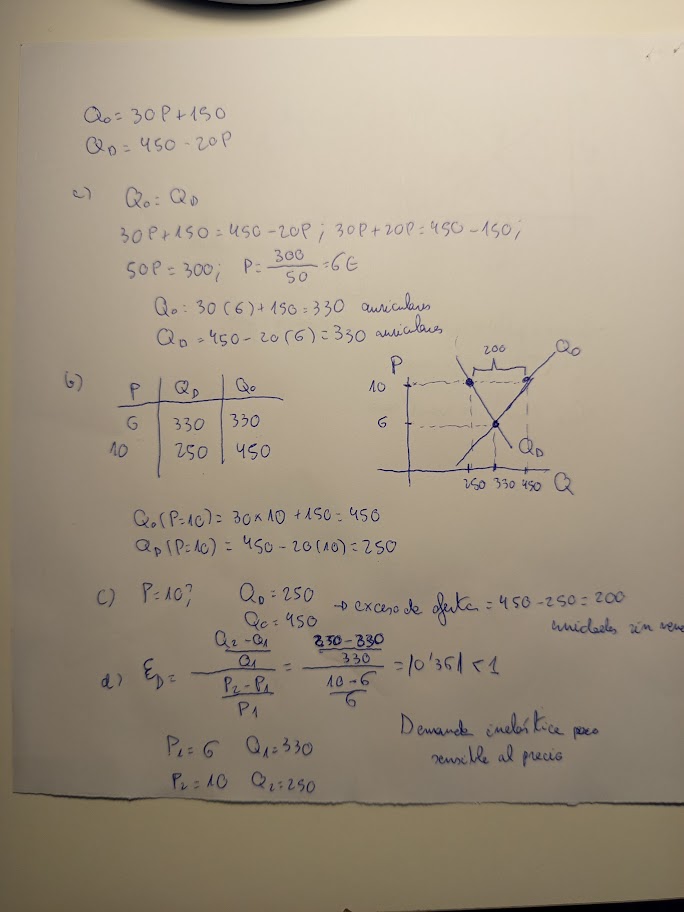 Qo = 30P + 150
QD = 450 - 20P
a) Qo = QD
30P + 150 = 450 - 20P ; 30P + 20P = 450 - 150;
50P = 300; P = 300/50 = 6€
Qo = 30(6) + 150 = 330 auriculares
QD = 450 - 20(6) = 330 auriculares
b) P | QD | Qo
6 | 330 | 330
10 | 250 | 450
P
200
Qo
10
6
QD
250 330 450 Q
Qo(P=10) = 30×10 + 150 = 450
QD(P=10) = 450 - 20(10) = 250
c) P=10? QD = 250
Qo = 450 → exceso de oferta = 450 - 250 = 200
unidades sin
d) ƐD = ((Q2 - Q1)/Q1)/((P2 - P1)/P1) = ((250 - 330)/330)/((10 - 6)/6) = |0'36| < 1
Demanda inelástica poco
sensible al precio
P1 = 6 Q1 = 330
P2 = 10 Q2 = 250